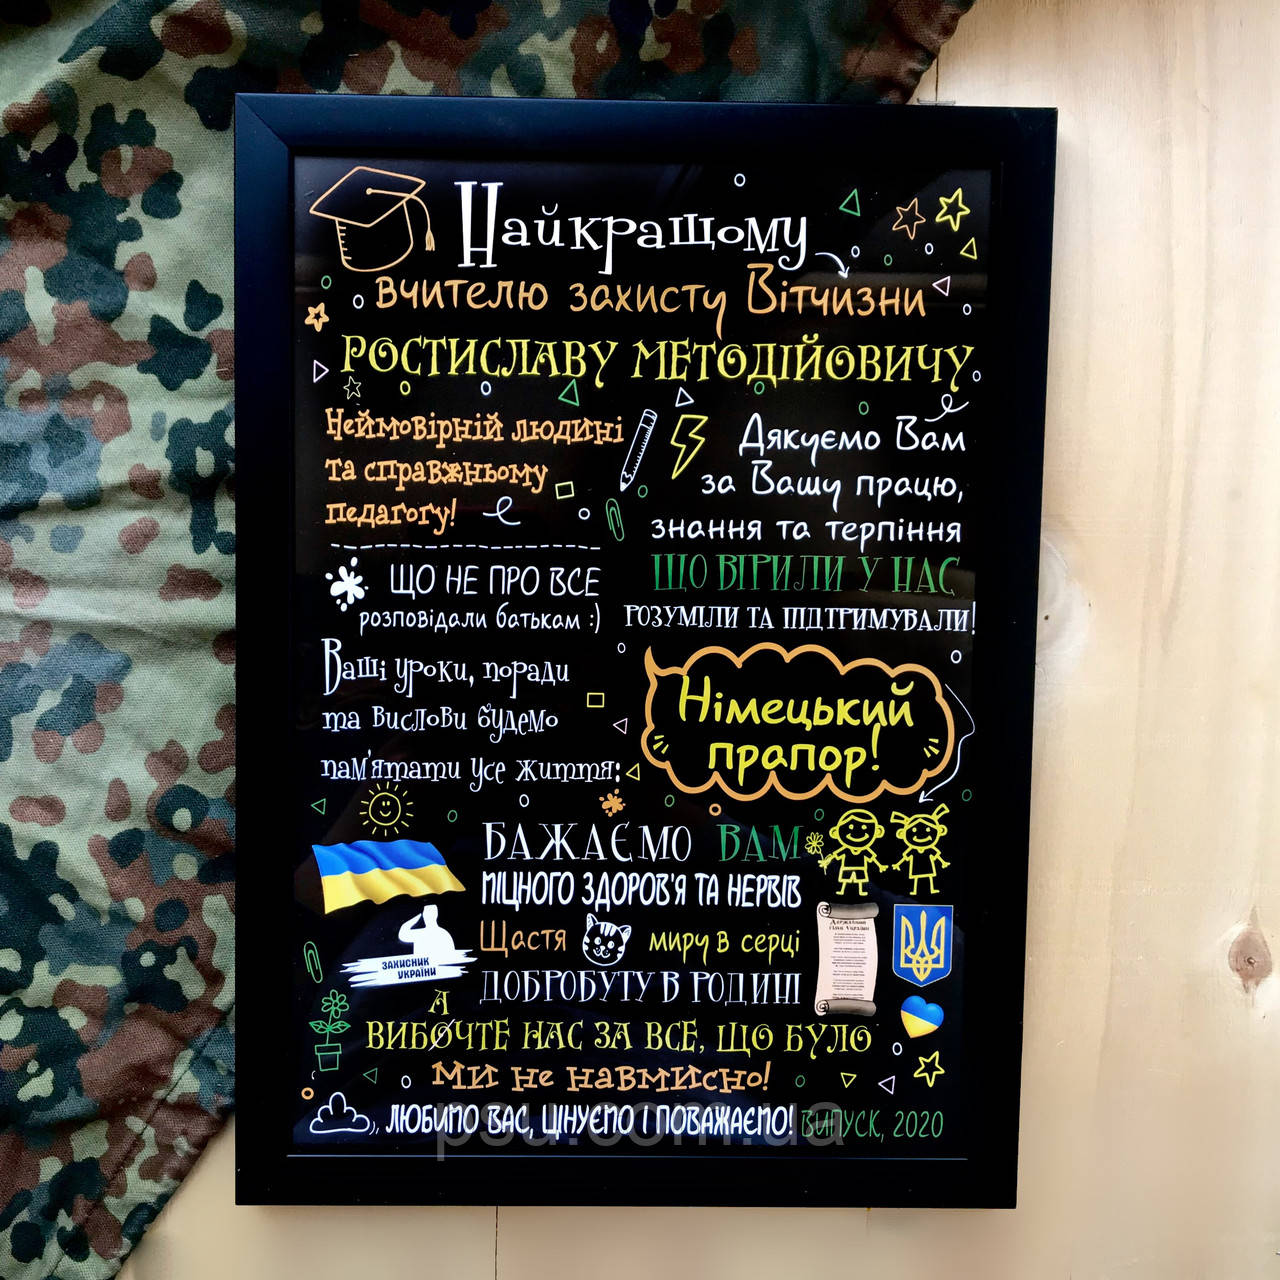 Найкращому
вчителю захисту Вітчизни
РОСТИСЛАВУ МЕТОДІЙОВИЧУ
Неймовірній людині
та справжньому
педагогу!
Дякуємо Вам
за Вашу працю,
знання та терпіння
ЩО ВІРИЛИ У НАС
РОЗУМІЛИ ТА ПІДТРИМУВАЛИ!
ЩО НЕ ПРО ВСЕ
розповідали батькам :)
Ваші уроки, поради
та вислови будемо
пам'ятати усе життя:
Німецький
прапор!
БАЖАЄМО ВАМ
МІЦНОГО ЗДОРОВ'Я ТА НЕРВІВ
Щастя миру в серці
ДОБРОБУТУ В РОДИНІ
ЗАХИСНИК
УКРАЇНИ
Державний
гімн України
А
ВИБОЧТЕ НАС ЗА ВСЕ, ЩО БУЛО
МИ НЕ НАВМИСНО!
ЛЮБИМО ВАС, ЦІНУЄМО І ПОВАЖАЄМО! ВИПУСК, 2020
psu.com.ua